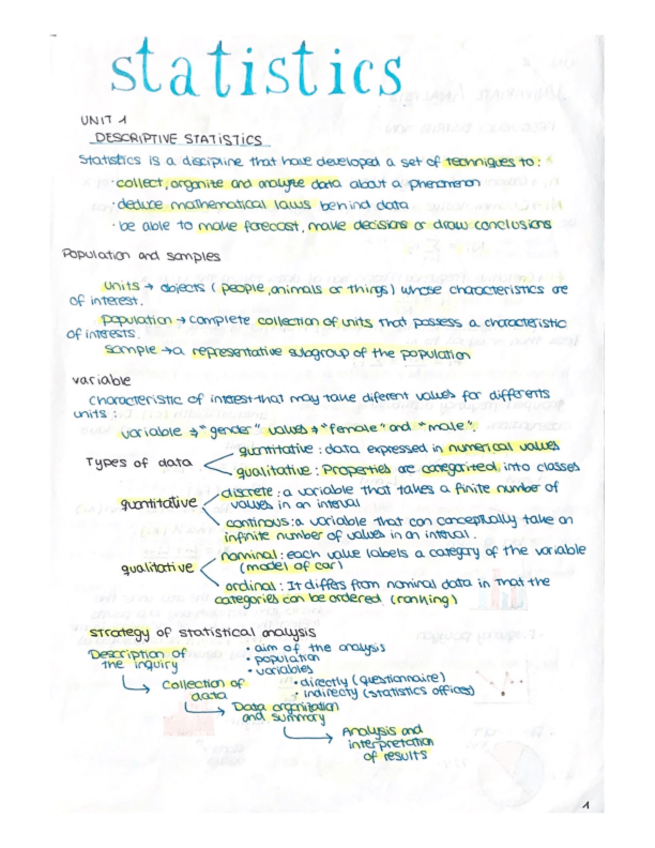 statistics
UNIT 1
DESCRIPTIVE STATISTICS
Statistics is a discipline that have developed a set of techniques to:
· collect, organite and analyze data about a phenomenon
· deduce mathematical laws behind data
· be able to make forecast, make decisions or draw conclusions
Population and samples
units → objects (people, animals or things) whose characteristics are
of interest.
population → complete collection of units that possess a characteristic
of interests.
sample → a representative subgroup of the population
variable
characteristic of interest that may take diferent values for differents
units:
variable → "gender" values → "female" and "male".
Types of data
quantitative: data expressed in numerical values
qualitative: Properties are categorized into classes
quantitative
discrete: a variable that takes a finite number of
values in an interval
continous: a variable that can conceptually take an
infinite number of values in an interval.
qualitative
nominal: each value labels a category of the variable
(model of car)
ordinal: It differs from nominal data in that the
categories can be ordered (ranking)
strategy of statistical analysis
Description of
the inquiry
• aim of the analysis
• population
• variables
Collection of
data
• directly (questionnaire)
• indirecty (statistics offices)
Data organitation
and summary
Analysis and
interpretation
of results
1